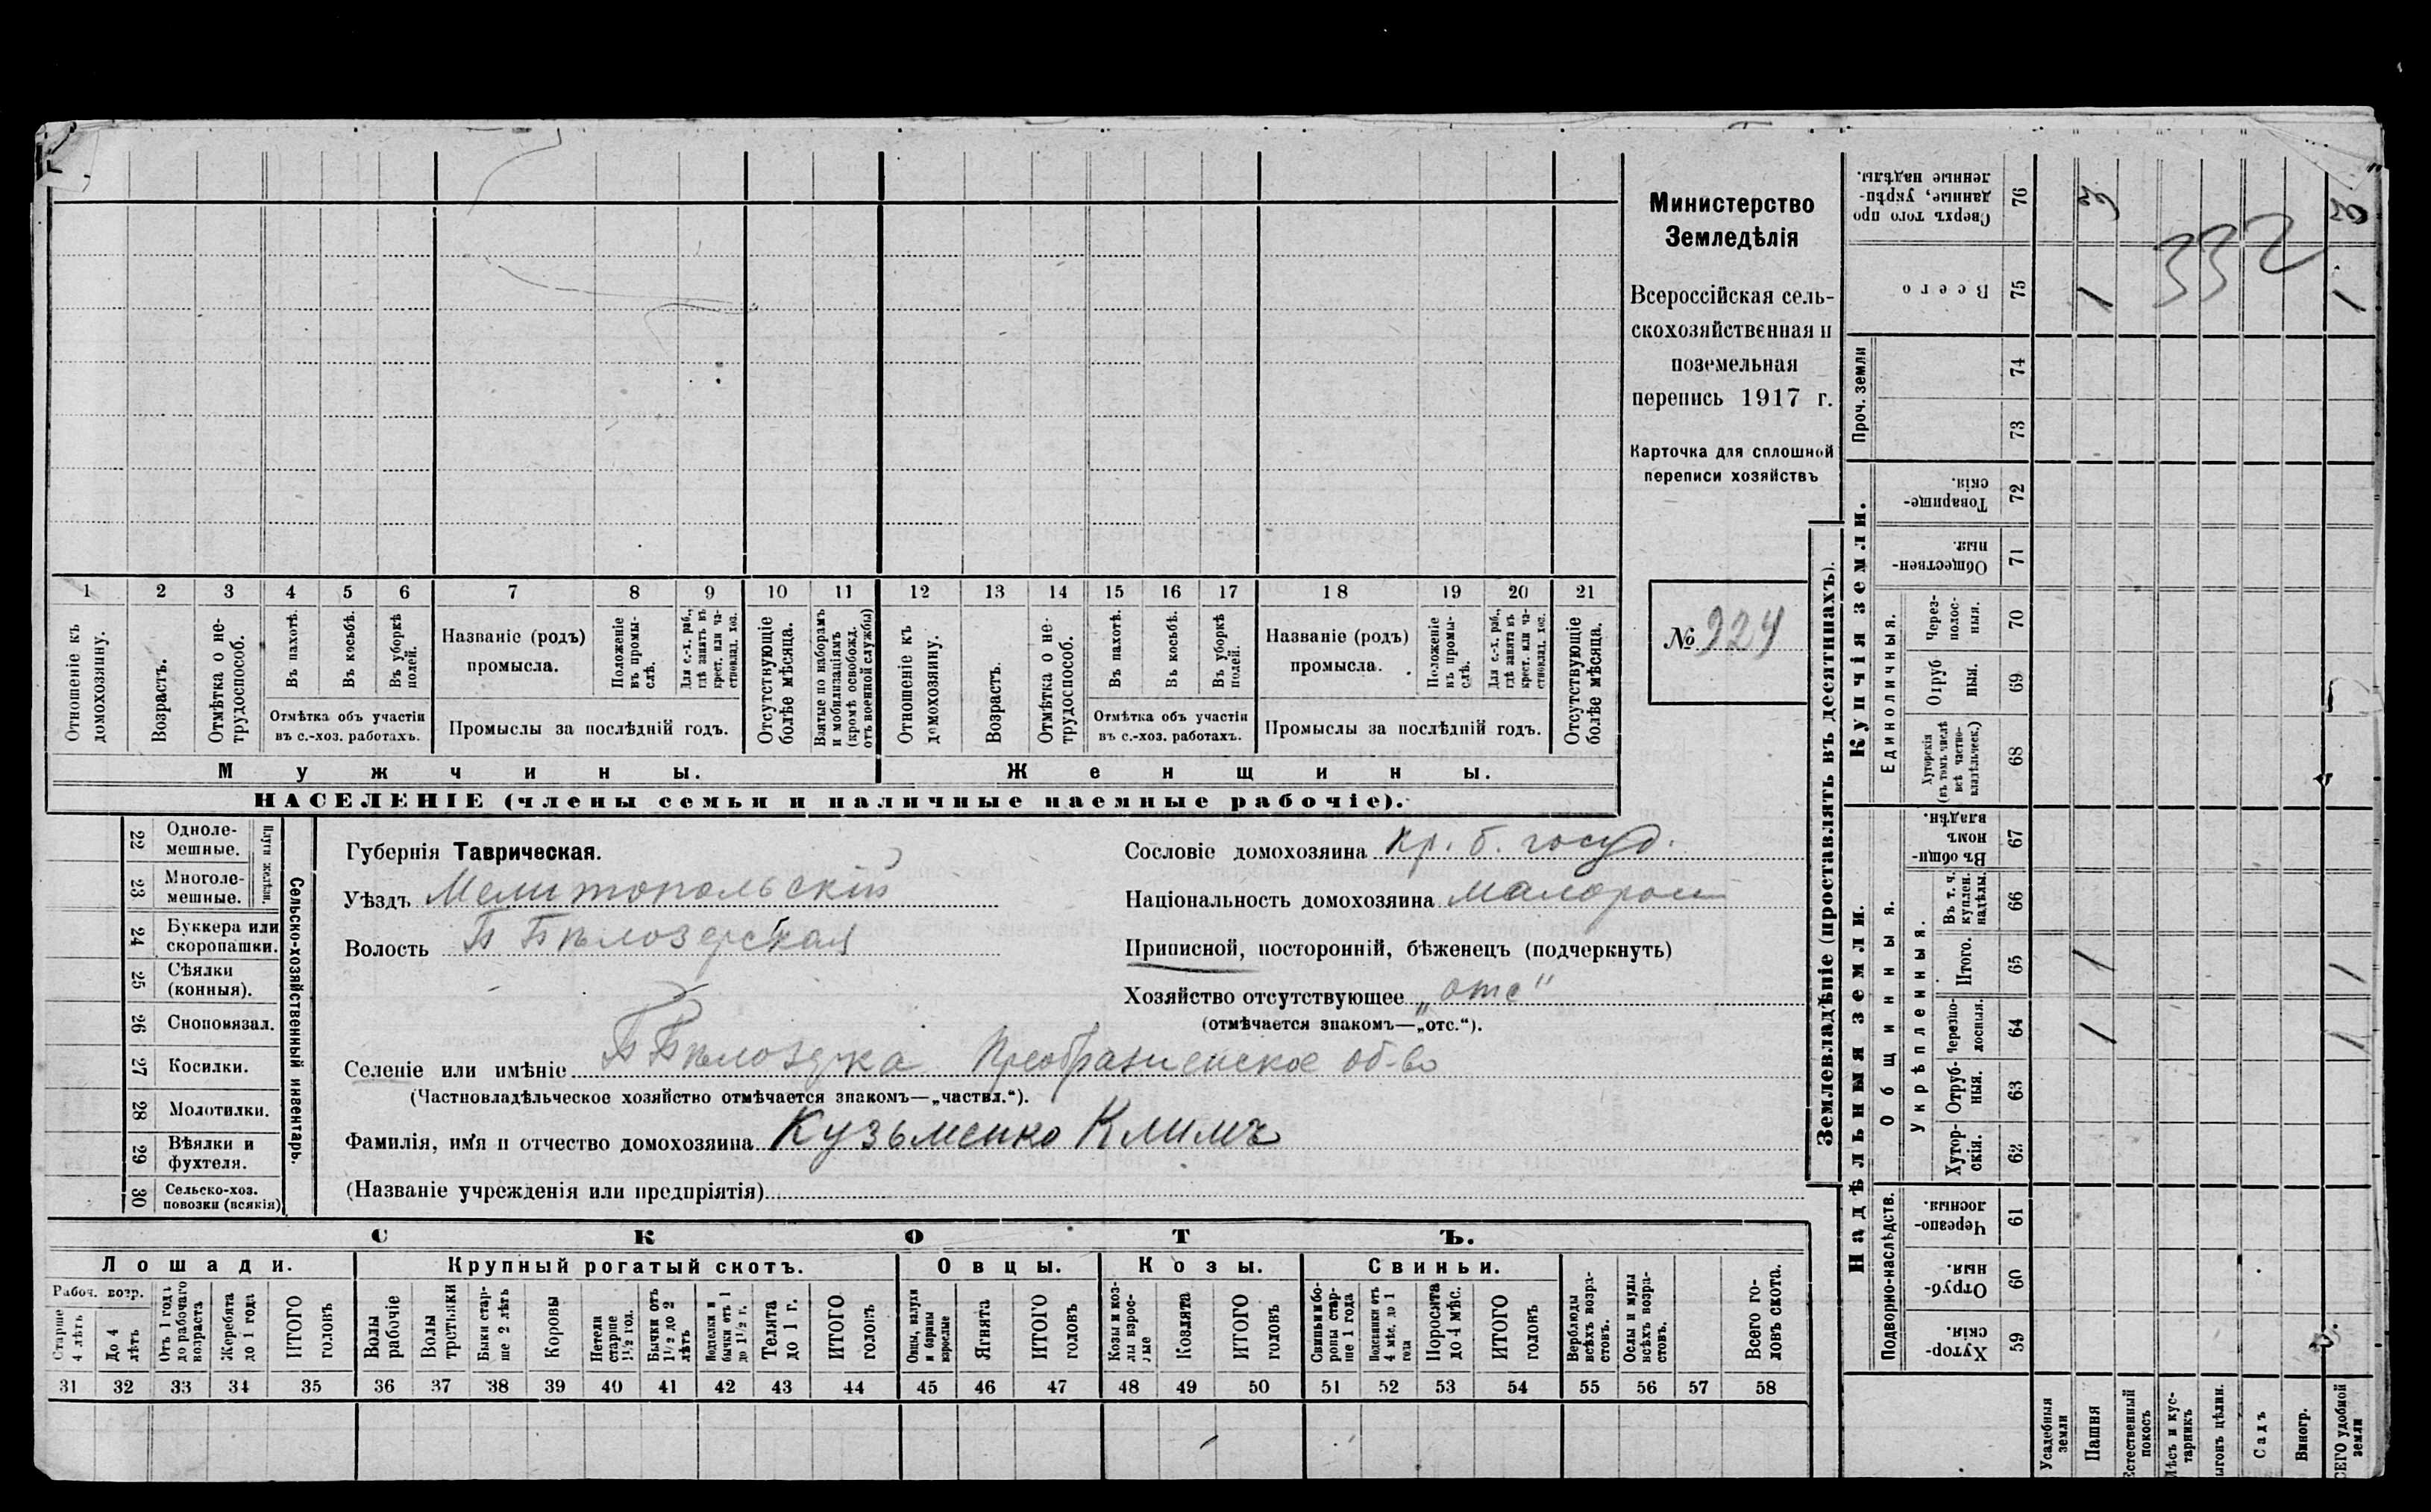 Министерство
Земледѣлія
Всероссійская сель-
скохозяйственная и
поземельная
перепись 1917 г.
Карточка для сплошной
переписи хозяйствъ
№ 924
1 2 3 4 5 6 7 8 9 10 11 12 13 14 15 16 17 18 19 20 21
Отношеніе къ домохозяину.
Возрастъ.
Отмѣтка о не-трудоспособ.
Въ пахотѣ.
Въ косьбѣ.
Въ уборкѣ полей.
Отмѣтка объ участіи
въ с.-хоз. работахъ.
Названіе (родъ)
промысла.
Положеніе въ промы-слѣ.
Для с.-х. раб., гдѣ занятъ въ крест. или ча-стновлад. хоз.
Промыслы за послѣдній годъ.
Отсутствующіе болѣе мѣсяца.
Взятые по наборамъ и мобилизаціямъ (кромѣ освобожд. отъ военной службы)
Отношеніе къ домохозяину.
Возрастъ.
Отмѣтка о не-трудоспособ.
Въ пахотѣ.
Въ косьбѣ.
Въ уборкѣ полей.
Отмѣтка объ участіи
въ с.-хоз. работахъ.
Названіе (родъ)
промысла.
Положеніе въ промы-слѣ.
Для с.-х. раб., гдѣ занята въ крест. или ча-стновлад. хоз.
Промыслы за послѣдній годъ.
Отсутствующіе болѣе мѣсяца.
Мужчины.
Женщины.
НАСЕЛЕНІЕ (члены семьи и наличные наемные рабочіе).
22 Одноле-
мешные.
23 Многоле-
мешные.
Плуги желѣзн.
24 Буккера или
скоропашки.
25 Сѣялки
(конныя).
26 Сноповязал.
27 Косилки.
28 Молотилки.
29 Вѣялки и
фухтеля.
30 Сельско-хоз.
повозки (всякія)
Сельско-хозяйственный инвентарь.
Губернія Таврическая.
Уѣздъ Мелитопольскій
Волость Б Бѣлозерская
Сословіе домохозяина кр. б. госуд.
Національность домохозяина малоросс
Приписной, посторонній, бѣженецъ (подчеркнуть)
Хозяйство отсутствующее „отс"
(отмѣчается знакомъ—„отс.“).
Селеніе или имѣніе Б Бѣлозерка Преображенское об-во
(Частновладѣльческое хозяйство отмѣчается знакомъ—„частвл.“).
Фамилія, имя и отчество домохозяина Кузьменко Климъ
(Названіе учрежденія или предпріятія)
СКОТЪ.
Лошади.
Крупный рогатый скотъ.
Овцы.
Козы.
Свиньи.
Рабоч. возр.
Старше 4 лѣтъ
До 4 лѣтъ
Отъ 1 года до рабочаго возраста
Жеребята до 1 года
ИТОГО головъ
Волы рабочіе
Волы третьяки
Быки стар-ше 2 лѣтъ
Коровы
Нетели старше 1½ год.
Бычки отъ 1½ до 2 лѣтъ
Подтелки и бычки отъ 1 до 1½ г.
Телята до 1 г.
ИТОГО головъ
Овцы, валухи и бараны взрослые
Ягнята
ИТОГО головъ
Козы и коз-лы взрос-лые
Козлята
ИТОГО головъ
Свиньи и бо-ровы стар-ше 1 года
Подсвинки отъ 4 мѣс. до 1 года
Поросята до 4 мѣс.
ИТОГО головъ
Верблюды всѣхъ возра-стовъ.
Ослы и мулы всѣхъ возра-стовъ.
Всего го-ловъ скота.
31 32 33 34 35 36 37 38 39 40 41 42 43 44 45 46 47 48 49 50 51 52 53 54 55 56 57 58
Землевладѣніе (проставлять въ десятинахъ).
Надѣльныя земли.
Купчія земли.
Проч. земли
Подворно-наслѣдств.
Общинныя.
Укрѣпленныя.
Единоличныя.
Сверхъ того про-данные, укрѣп-ленные надѣлы. 76 3 3
Всего 75 1 1
332
74
73
Товарище-скія. 72
Обществен-ныя. 71
Через-полос-ныя. 70
Отруб-ныя. 69
Хуторскія (въ томъ числѣ всѣ частно-владѣльческ.) 68
Въ общин-номъ владѣн. 67
Въ т. ч. куплен. надѣлы. 66
Итого. 65 1 1
Черезпо-лосныя. 64 1 1
Отруб-ныя. 63
Хутор-скія. 62
Черезпо-лосныя 61
Отруб-ныя. 60
Хутор-скія. 59
Усадебныя земли
Пашня
Естественный покосъ
Лѣсъ и кус-тарникъ
ыгонъ цѣлин.
Садъ
Виногр.
СЕГО удобной земли